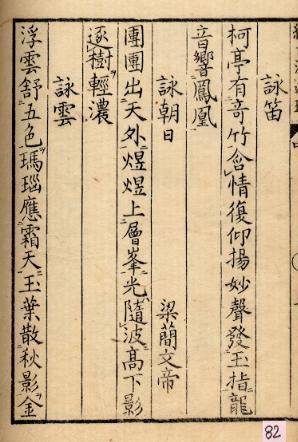 詠笛
柯亭有竒竹含情復仰揚妙聲發玉指龍
音響鳳凰
詠朝日　梁蕳文帝
團團出天外煜煜上層峯光隨波髙下影
逐樹輕濃
詠雲
浮雲舒五色瑪瑙應霜天玉葉散秋影金
82